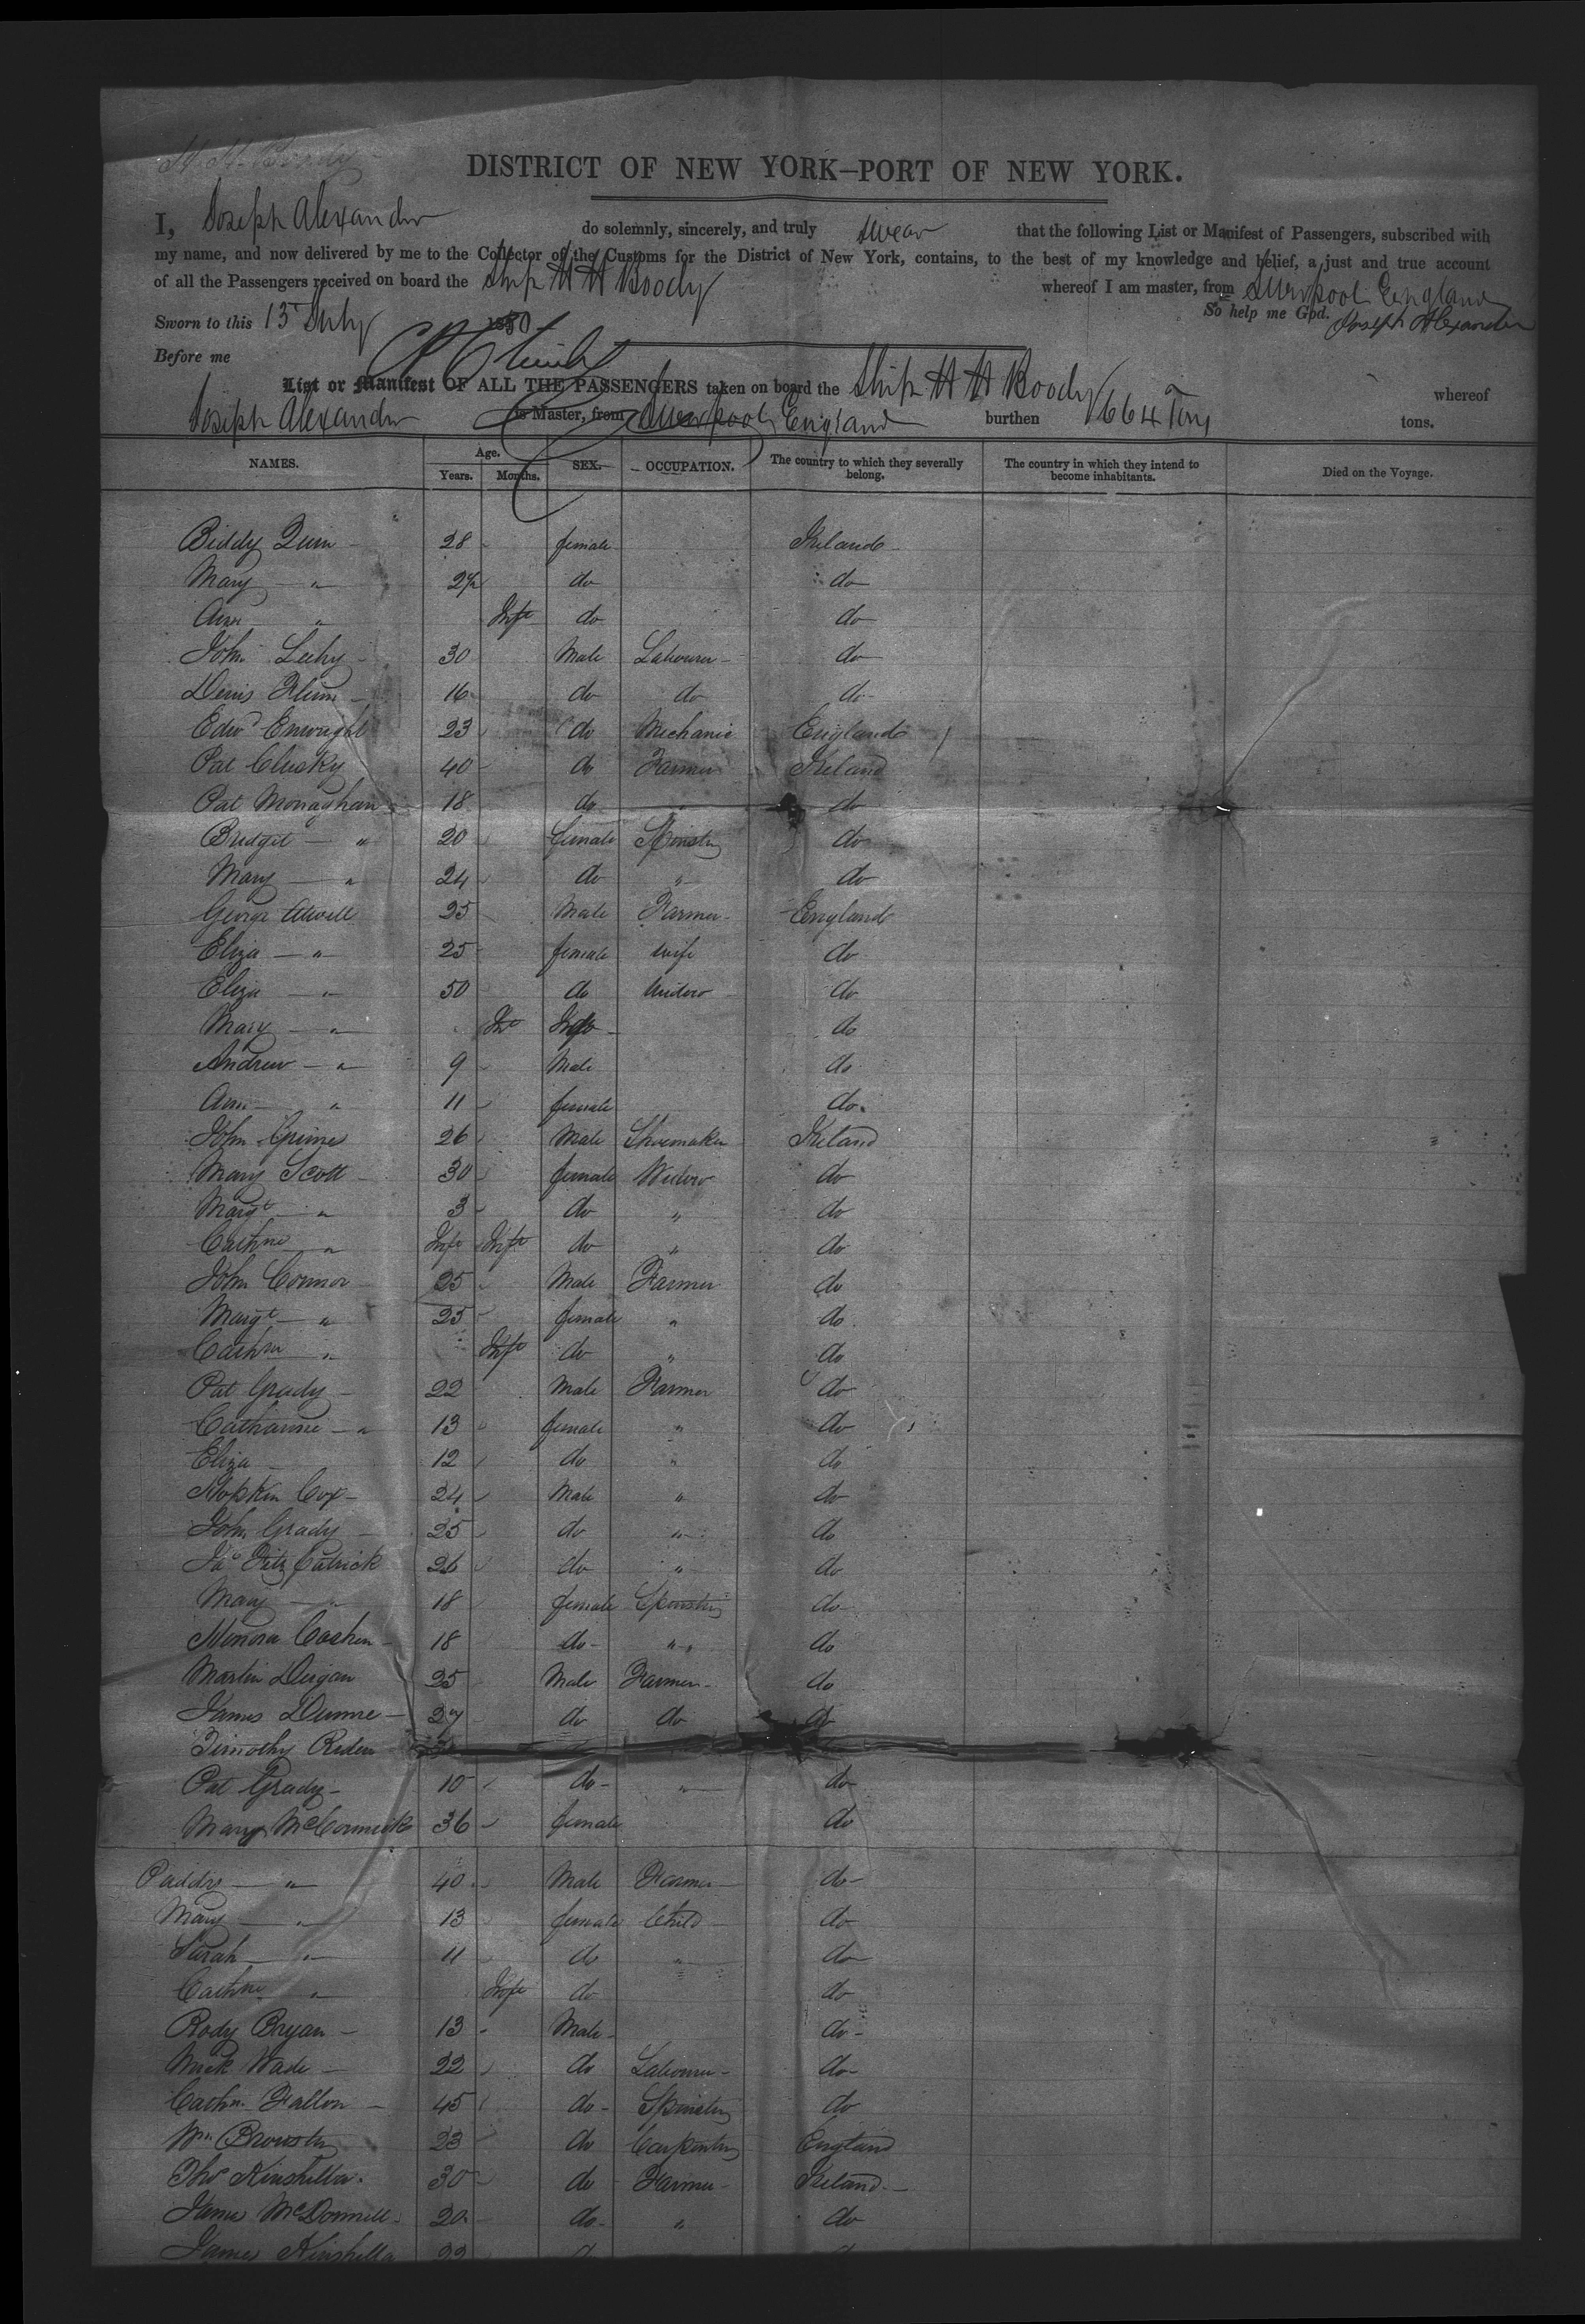 H. H. Boody
DISTRICT OF NEW YORK—PORT OF NEW YORK.
I, Joseph Alexander do solemnly, sincerely, and truly swear that the following List or Manifest of Passengers, subscribed with
my name, and now delivered by me to the Collector of the Customs for the District of New York, contains, to the best of my knowledge and belief, a just and true account
of all the Passengers received on board the Ship H H Boody whereof I am master, from Liverpool England
Sworn to this 15 July 1850 So help me God. Joseph Alexander
Before me
List or Manifest OF ALL THE PASSENGERS taken on board the Ship H H Boody whereof
Joseph Alexander is Master, from Liverpool England burthen 664 Tons tons.
NAMES. Age. Years. Months. SEX. OCCUPATION. The country to which they severally belong. The country in which they intend to become inhabitants. Died on the Voyage.
Biddy Quin 28 female Ireland
Mary " do do
Ann " Inft do do
John Leehy 30 Male Labourer do
Denis 16 do do do
Edwd Enwright 23 do Mechanic England
Pat Clusky 40 do Farmer Ireland
Pat Monaghan 18 do " do
Bridget " 20 female Spinster do
Mary " 24 do " do
George Atwell 25 Male Farmer England
Eliza " 25 female wife do
Eliza " 50 do widow do
Mary " Inft Inft do
Andrew " 9 Male do
Ann " 11 female do
John Grimes 26 Male Shoemaker Ireland
Mary Scott 30 female Widow do
Margt " 3 do " do
Cathne " Inft Inft do " do
John Connor 25 Male Farmer do
Margt " 25 female " do
Cathne " Inft do " do
Pat Grady 22 Male Farmer do
Catharine " 13 female " do
Eliza 12 do " do
Hopkin Cox 24 Male " do
John Grady 25 do " do
Jas Fitz Patrick 26 do " do
Mary " 18 female Spinster do
Honora Cashen 18 do " do
Martin Deigan 25 Male Farmer do
James Dunne 27 do do do
Timothy Riden
Pat Grady 10 do " do
Mary McCormick 36 female do
Paddy " 40 Male Farmer do
Mary " 13 female Child do
Sarah " 11 do " do
Cathne " Inft do do
Rody Bryan 13 Male do
Mick Wade 22 do Labourer do
Cathn Fallon 45 do Spinster do
Wm Brewster 23 do Carpenter England
Thos Kinshella 30 do Farmer Ireland
James McDonnell 20 do " do
James Kinshella 22 do do